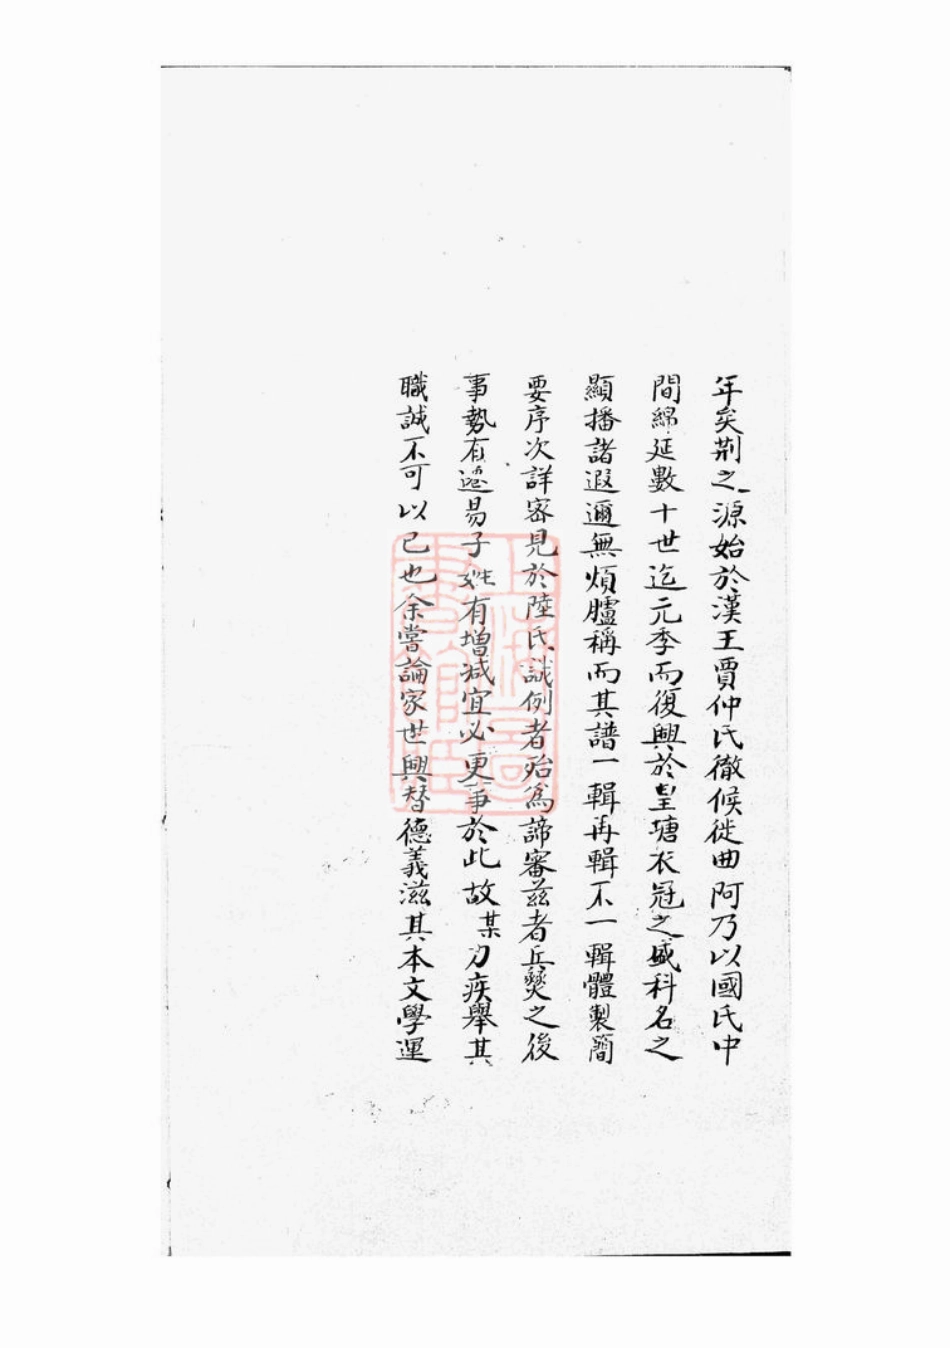 年矣荆之源始於漢王賈仲氏徹候徙曲阿乃以國氏中
間綿延數十世迄元季而復興於皇塘衣冠之盛科名之
顯播諸遐邇無煩臚稱而其譜一輯再輯不一輯體製簡
要序次詳密見於陸氏諴例者殆為諦審茲者兵燹之後
事勢有遷易子姓有增減宜必更事於此故某力疾舉其
職誠不可以已也余嘗論家世興替德義滋其本文學運
上海圖書館藏